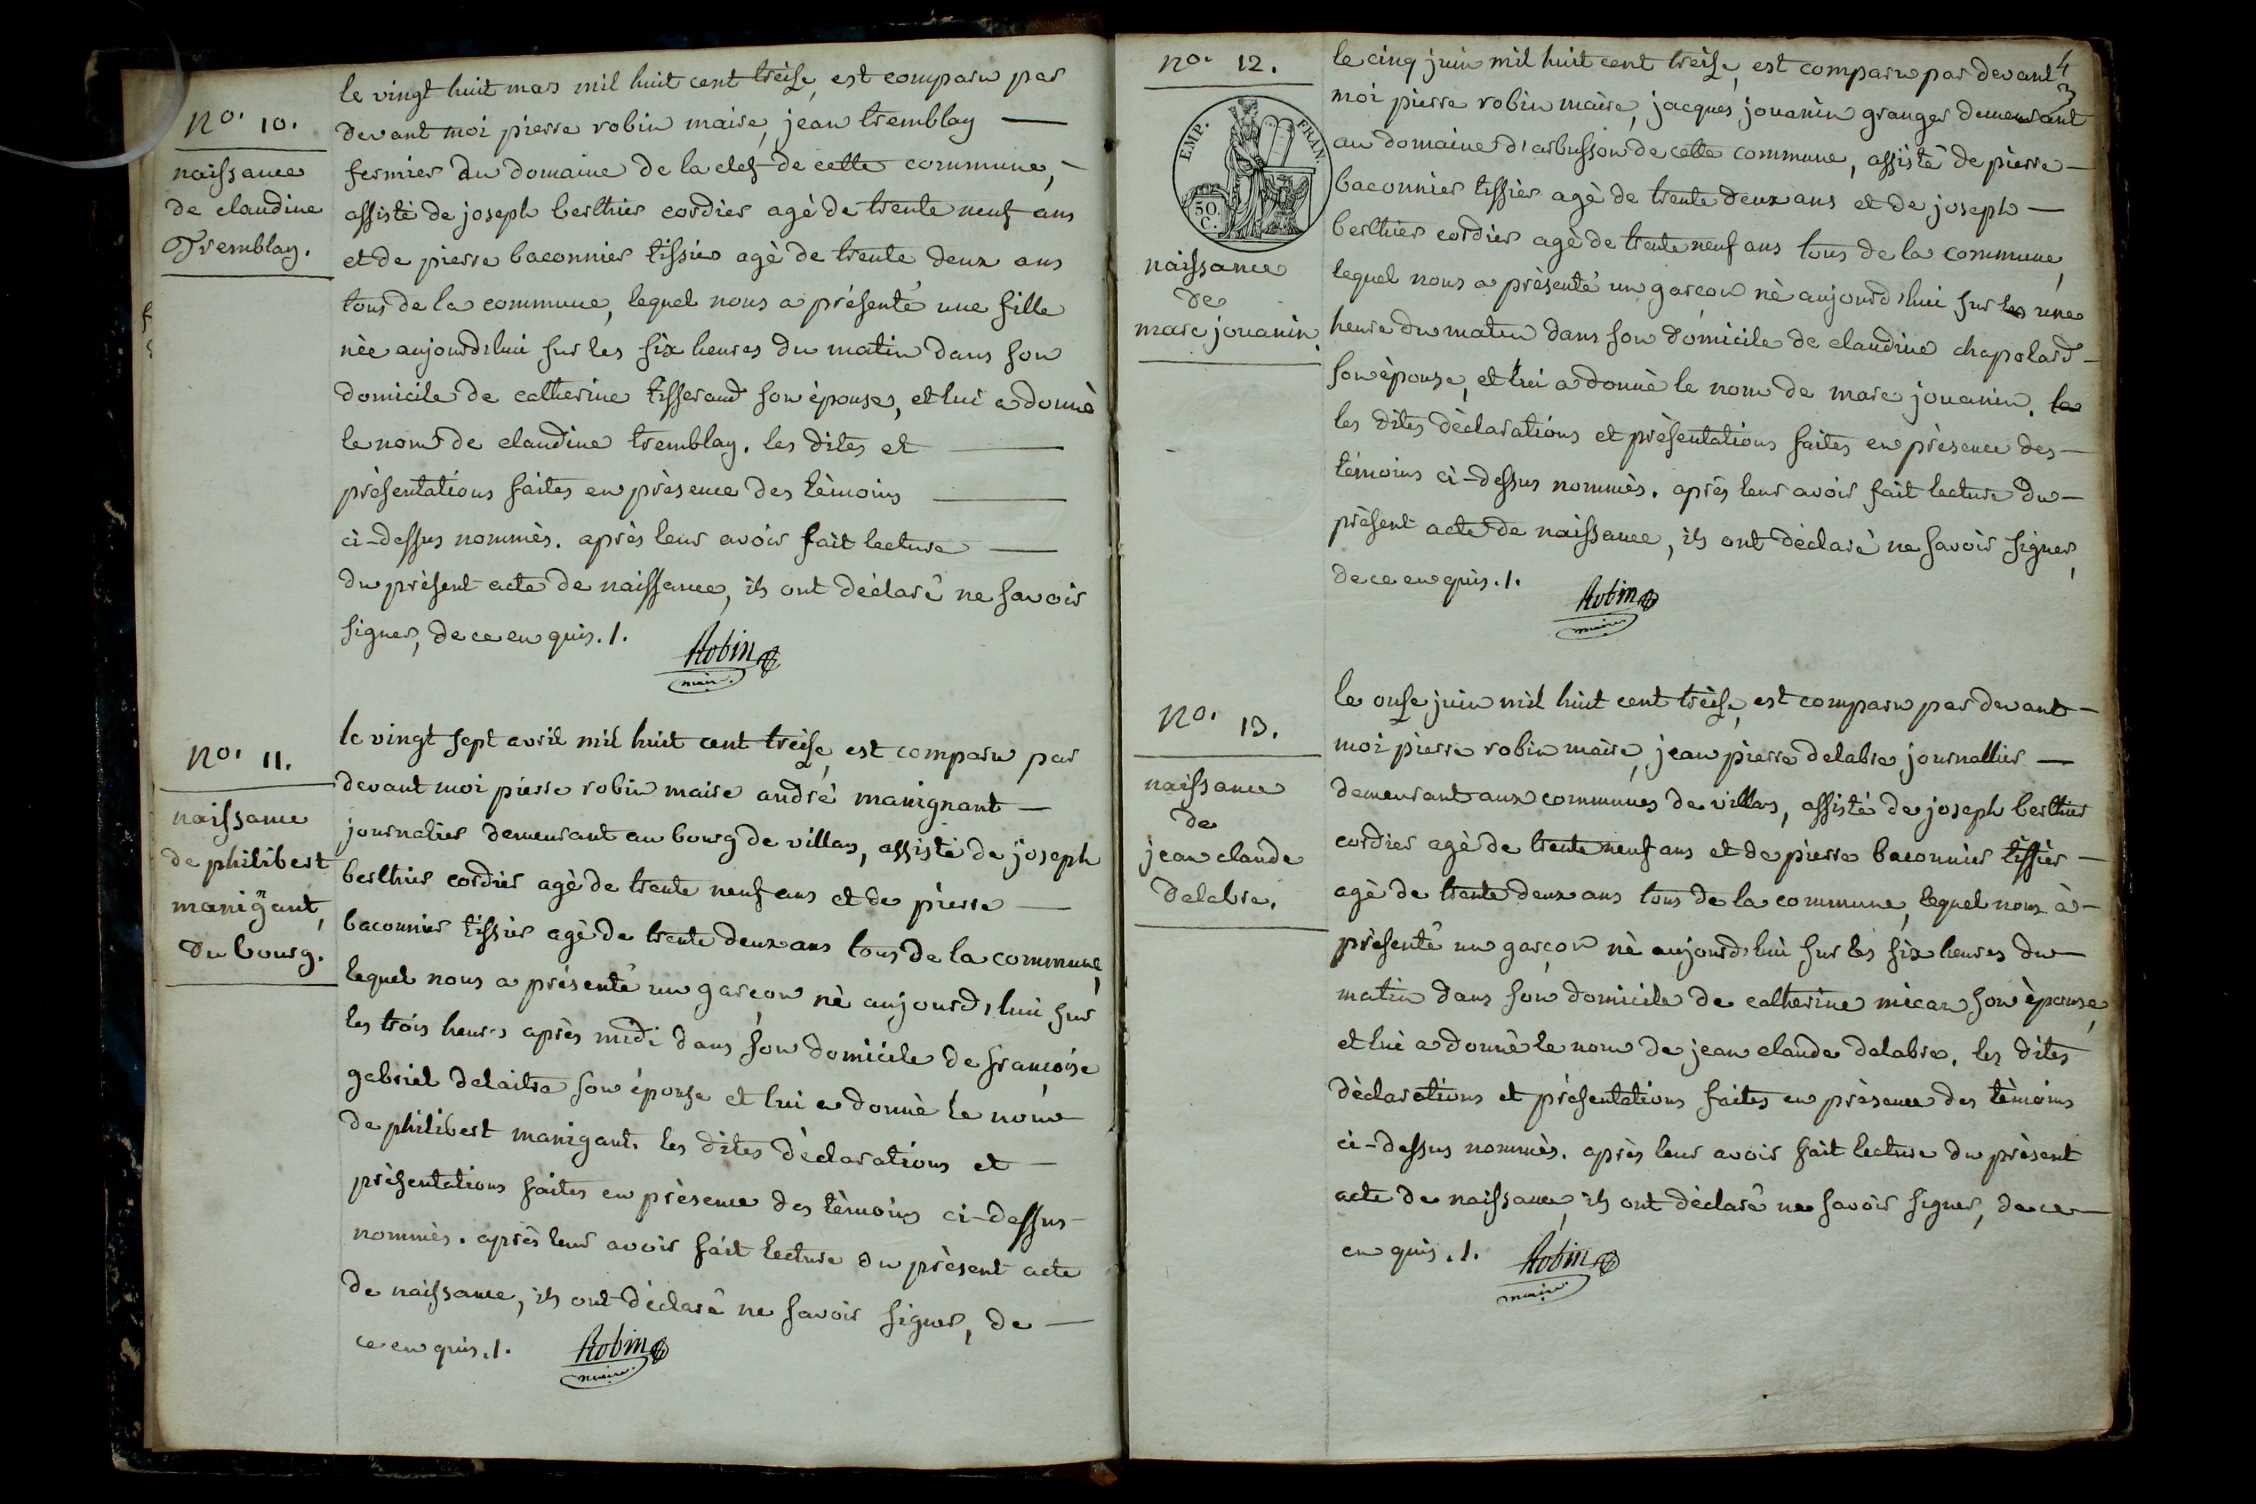 no. 10.
naissance
de claudine
Tremblay.
le vingt huit mars mil huit cent treise, est comparu par
devant moi pierre robin maire, jean tremblay
fermier du domaine de la clef de cette commune,
assisté de joseph berthier cordier agè de trente neuf ans
et de pierre baconnier tissier agè de trente deux ans
tous de la commune, lequel nous a présenté une fille
nèe aujourd'hui sur les six heures du matin dans son
domicile de catherine tisserand son épouse, et lui a donnè
le nom de claudine tremblay. les dites et
présentations faites en prèsence des tèmoins
ci-dessus nommès. après leur avoir fait lecture
du prèsent acte de naissance, ils ont déclaré ne savoir
signer, de ce enquis./.
Robin
maire
no. 11.
naissance
de philibert
manigant,
du bourg.
le vingt sept avril mil huit cent treise, est comparu par
devant moi pierre robin maire andré manignant
journalier demeurant au bourg de villars, assisté de joseph
berthier cordier agè de trente neuf ans et de pierre
baconnier tissier agè de trente deux ans tous de la commune,
lequel nous a présenté un garçon nè aujourd'hui sur
les trois heures après midi dans son domicile de françoise
gabriel delaitre son épouse et lui a donnè le nom
de philibert manigant. les dites dèclarations et
présentations faites en prèsence des tèmoins ci-dessus
nommès. après leur avoir fait lecture du prèsent acte
de naissance, ils ont dèclaré ne savoir signer, de
ce enquis./.
Robin
maire
4
3
no. 12.
EMP. FRAN.
50 C.
naissance
de
marc jouanin.
le cinq juin mil huit cent treise, est comparu par devant
moi pierre robin maire, jacques jouanin granger demeurant
au domaine d'arbusson de cette commune, assisté de pierre
baconnier tissier agè de trente deux ans et de joseph
berthier cordier agè de trente neuf ans tous de la commune,
lequel nous a prèsenté un garçon nè aujourd'hui sur les une
heure du matin dans son domicile de claudine chapolard
son èpouse, et lui a donnè le nom de marc jouanin. la
les dites dèclarations et prèsentations faites en prèsence des
témoins ci-dessus nommès. après leur avoir fait lecture du
prèsent acte de naissance, ils ont déclaré ne savoir signer,
de ce enquis./.
Robin
maire
no. 13.
naissance
de
jean claude
delabre.
le onse juin mil huit cent treise, est comparu par devant
moi pierre robin maire, jean pierre delabre journallier
demeurant aux communes de villars, assisté de joseph berthier
cordier agè de trente neuf ans et de pierre baconnier tissier
agè de trente deux ans tous de la commune, lequel nous à
prèsenté un garçon nè aujourd'hui sur les six heures du
matin dans son domicile de catherine micar son èpouse,
et lui a donnè le nom de jean claude delabre. les dites
dèclarations et présentations faites en prèsence des tèmoins
ci-dessus nommès. après leur avoir fait lecture du prèsent
acte de naissance, ils ont déclaré ne savoir signer, de ce
enquis./.
Robin
maire